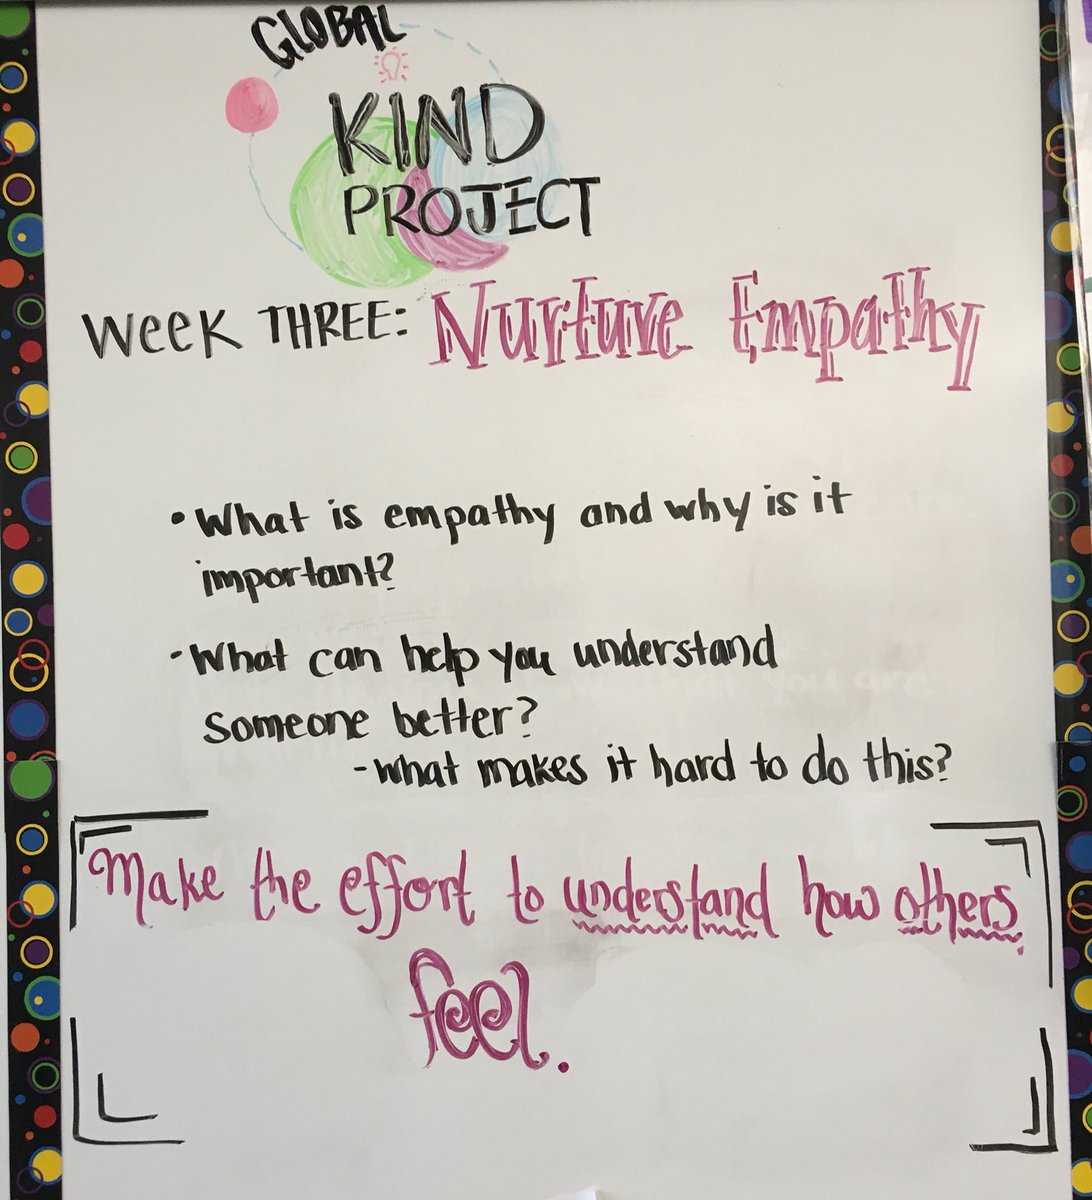 GLOBAL
KIND
PROJECT
Week THREE: Nurture Empathy
• What is empathy and why is it
important?
- What can help you understand
someone better?
- What makes it hard to do this?
Make the effort to understand how others
feel.